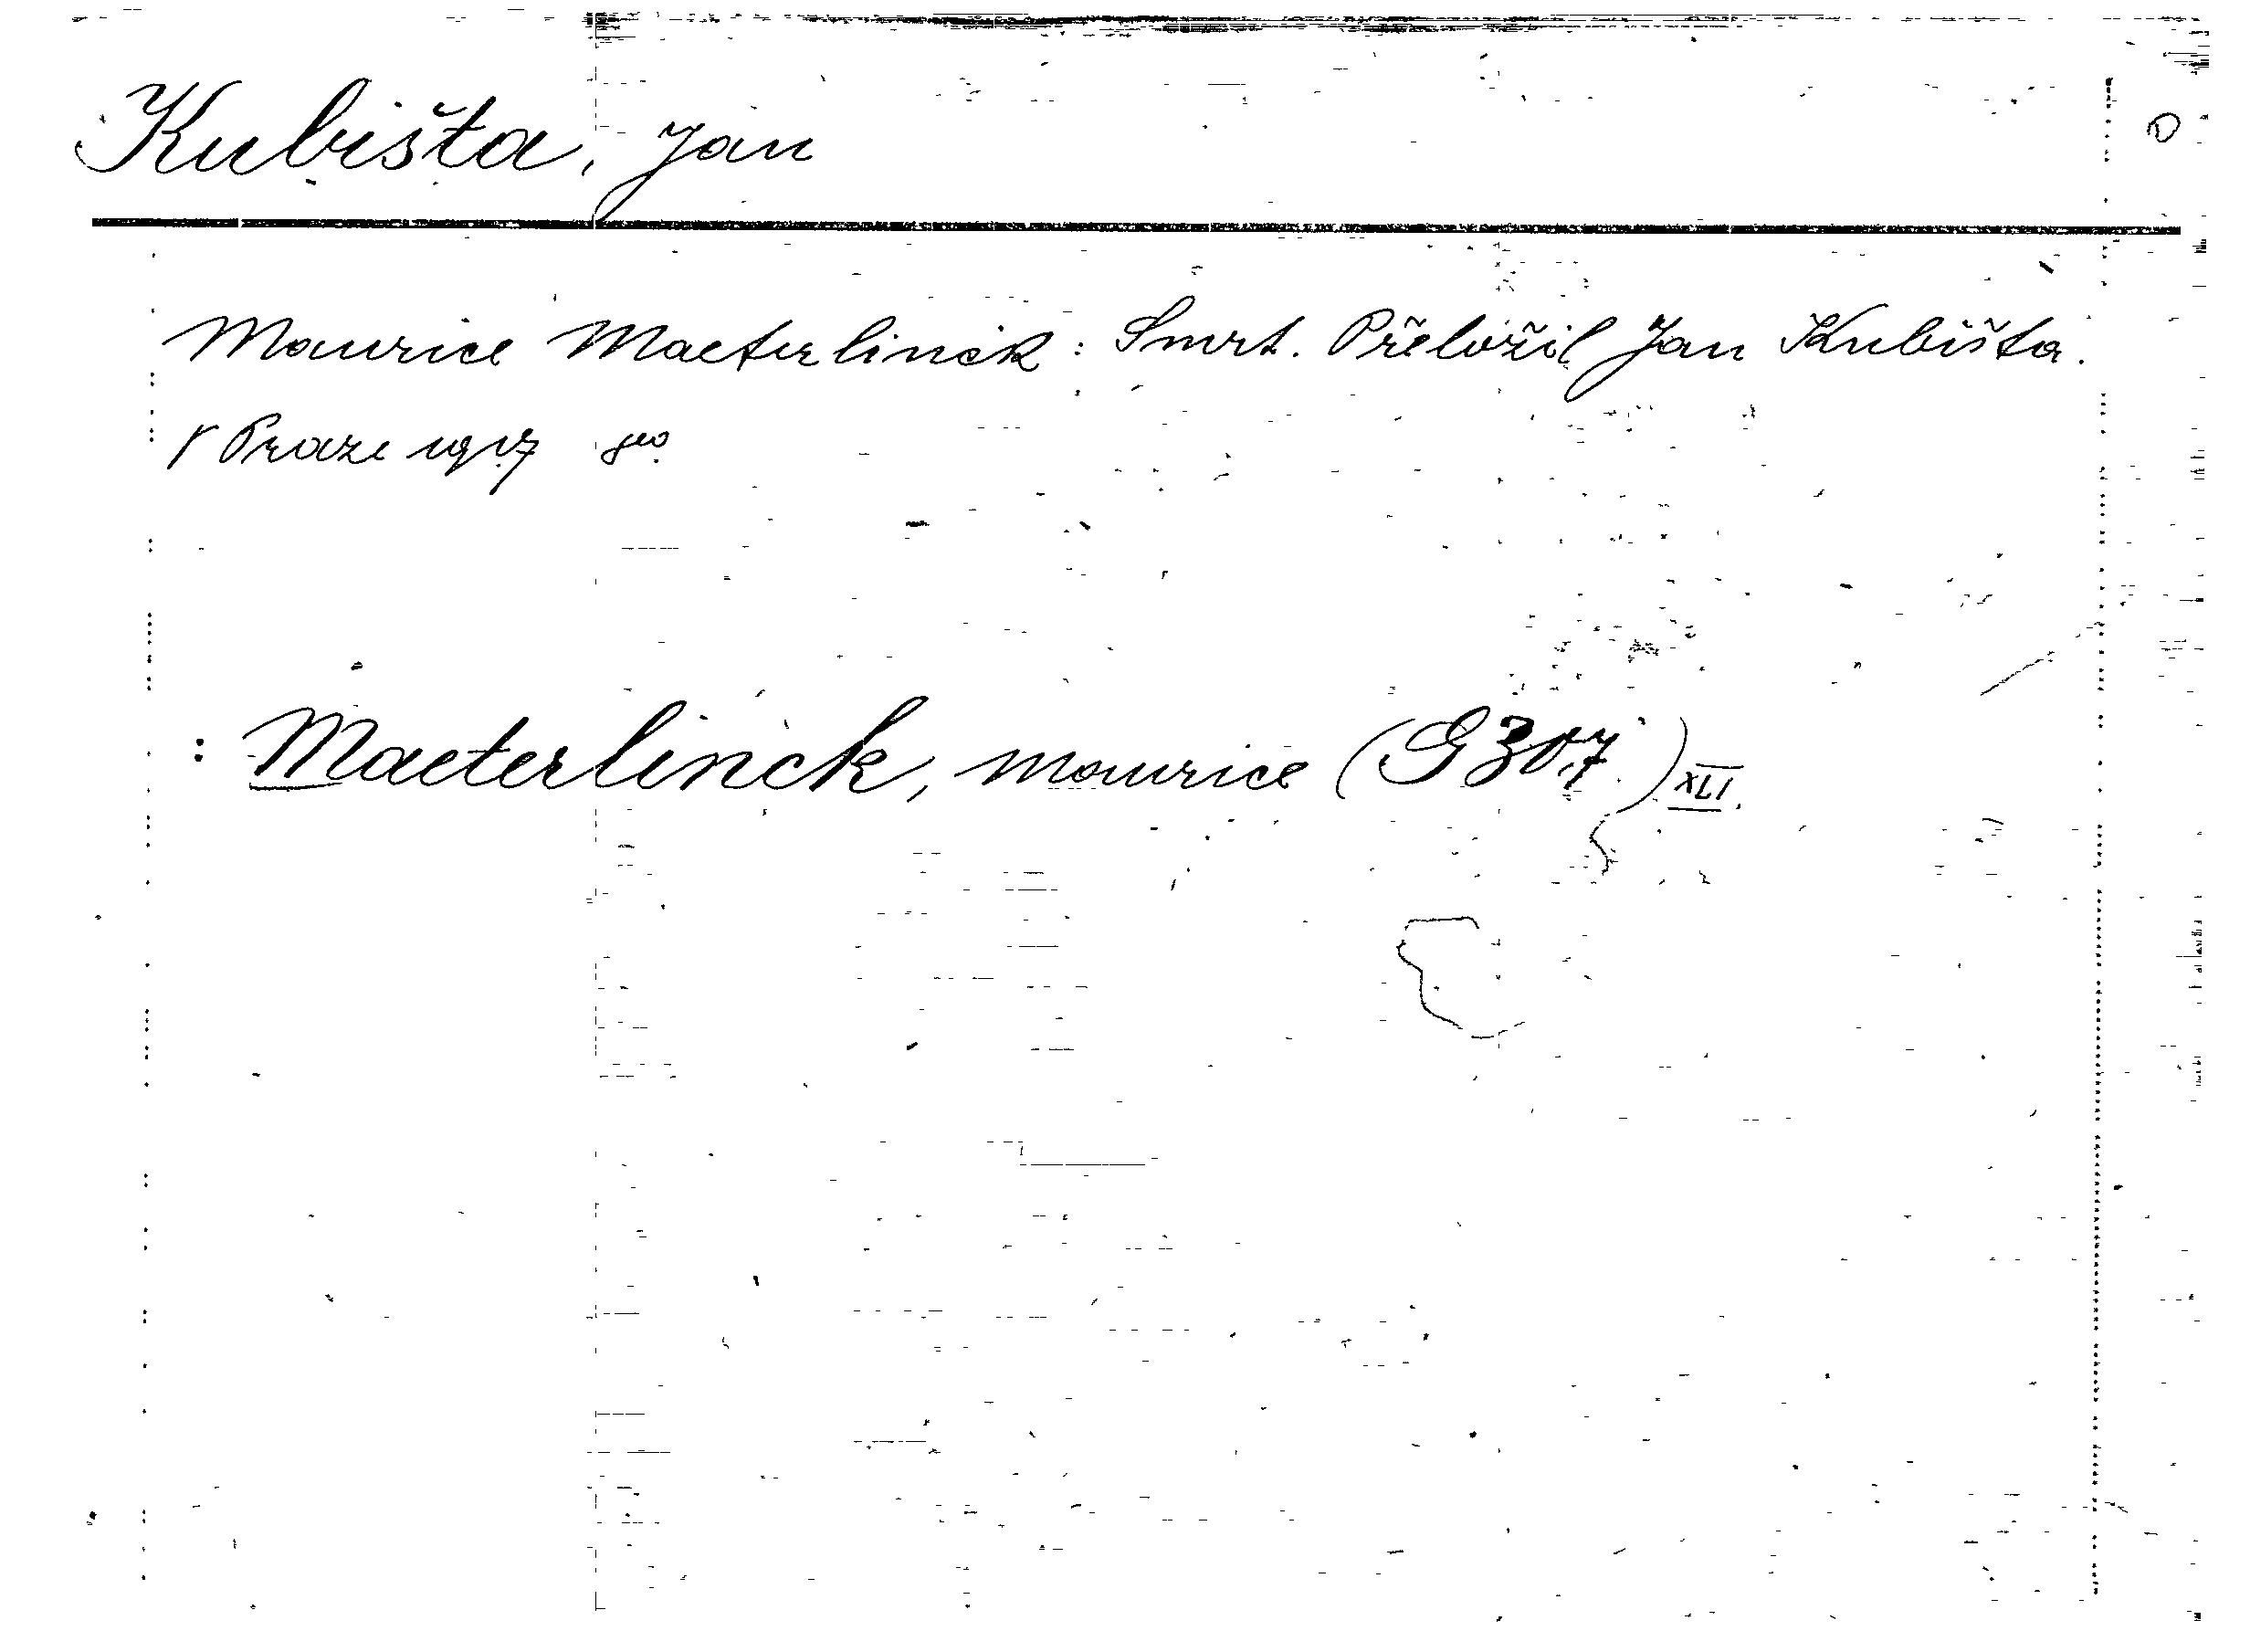 Kubišta, Jan
Maurice Maeterlinck: Smrt. Přeložil Jan Kubišta.
V Praze 1917 8º.
: Maeterlinck, Maurice (G 307.) XLI.